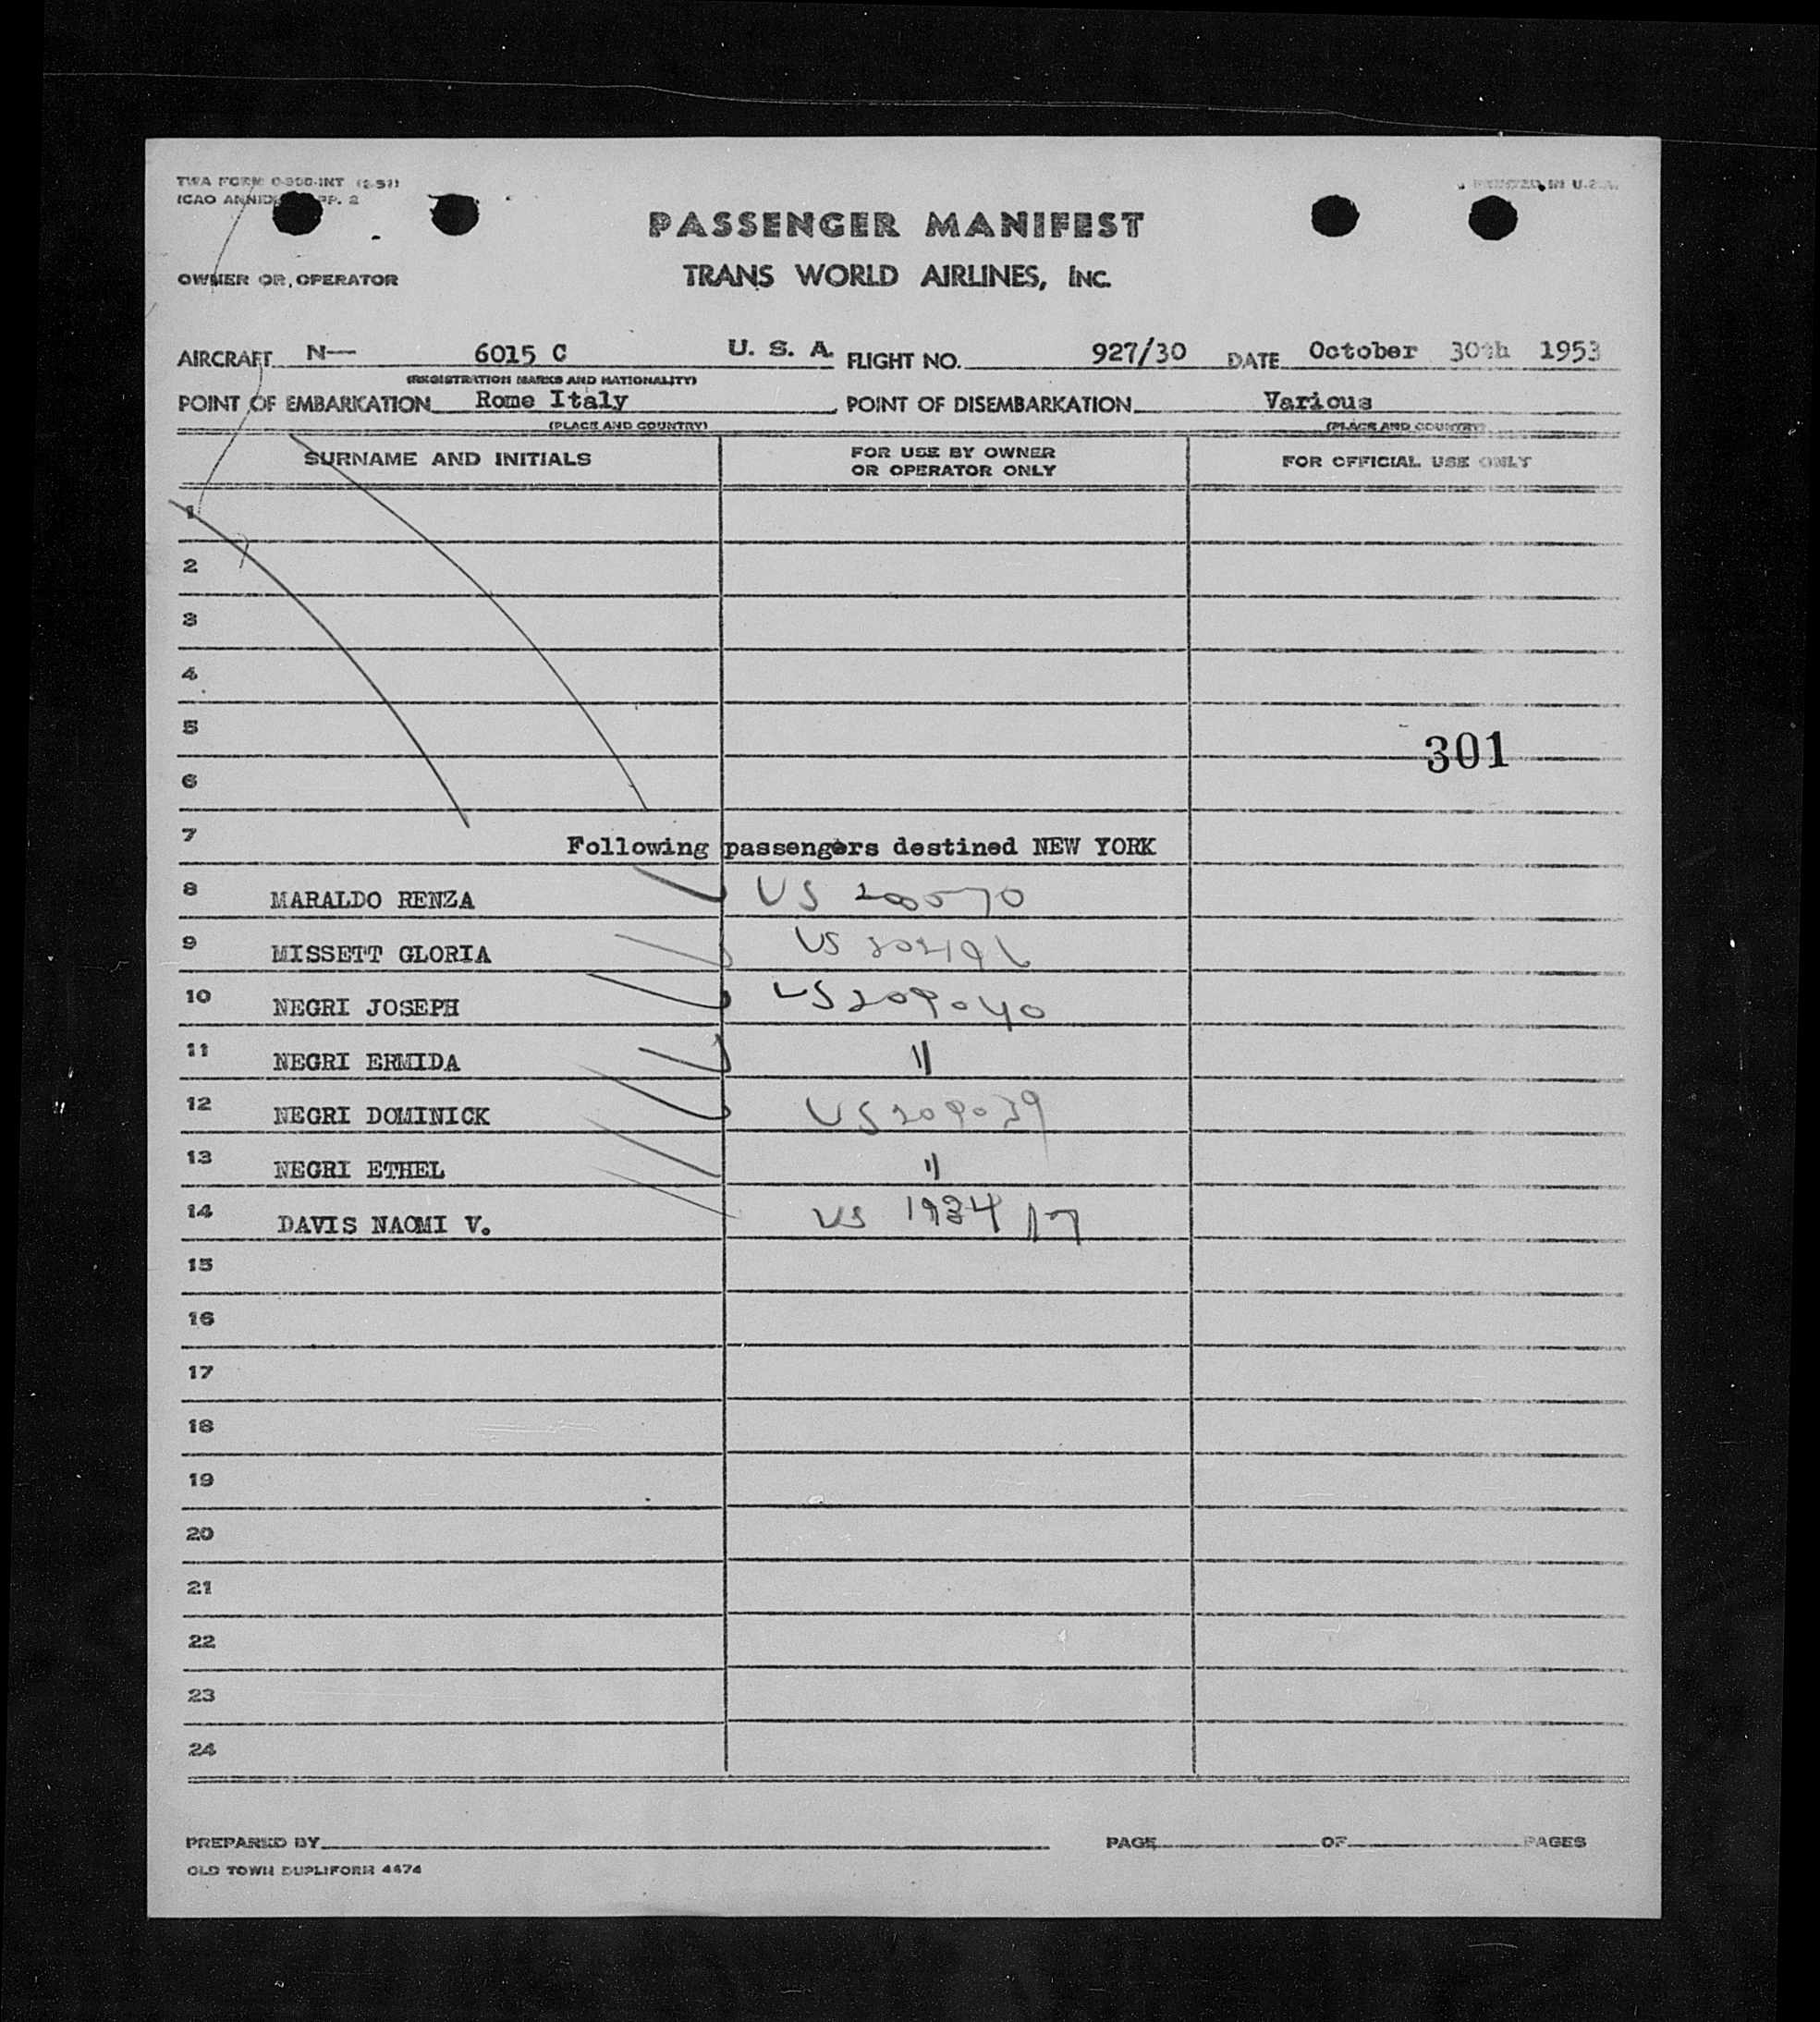 TWA FORM 0-300-INT (2-51)
ICAO PP. 2
PRINTED IN U.S.A.
PASSENGER MANIFEST
OWNER OR OPERATOR
TRANS WORLD AIRLINES, INC.
AIRCRAFT N— 6015 C U. S. A. FLIGHT NO. 927/30 DATE October 30th 1953
(REGISTRATION MARKS AND NATIONALITY)
POINT OF EMBARKATION Rome Italy POINT OF DISEMBARKATION Various
(PLACE AND COUNTRY) (PLACE AND COUNTRY)
SURNAME AND INITIALS FOR USE BY OWNER OR OPERATOR ONLY FOR OFFICIAL USE ONLY
1
2
3
4
5
301
6
7 Following passengers destined NEW YORK
8 MARALDO RENZA US 200570
9 MISSETT GLORIA US 202196
10 NEGRI JOSEPH US 209040
11 NEGRI ERMIDA "
12 NEGRI DOMINICK US 209039
13 NEGRI ETHEL "
14 DAVIS NAOMI V. US 193417
15
16
17
18
19
20
21
22
23
24
PREPARED BY PAGE OF PAGES
OLD TOWN DUPLIFORM 4474